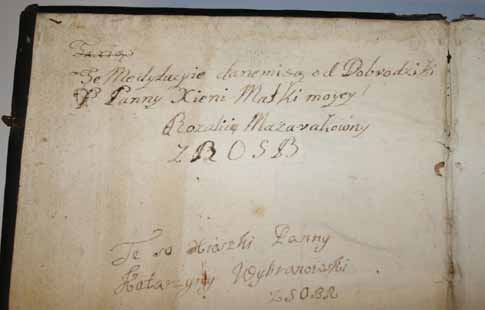 Te Medytacyie dane mi są od Dobrodziki
J Panny Xieni Matki moyey
Rozalię Mazarakowny
Z R O S B
Te so xiaszki Panny
Katarzyny Wybranowski
Z S O B R